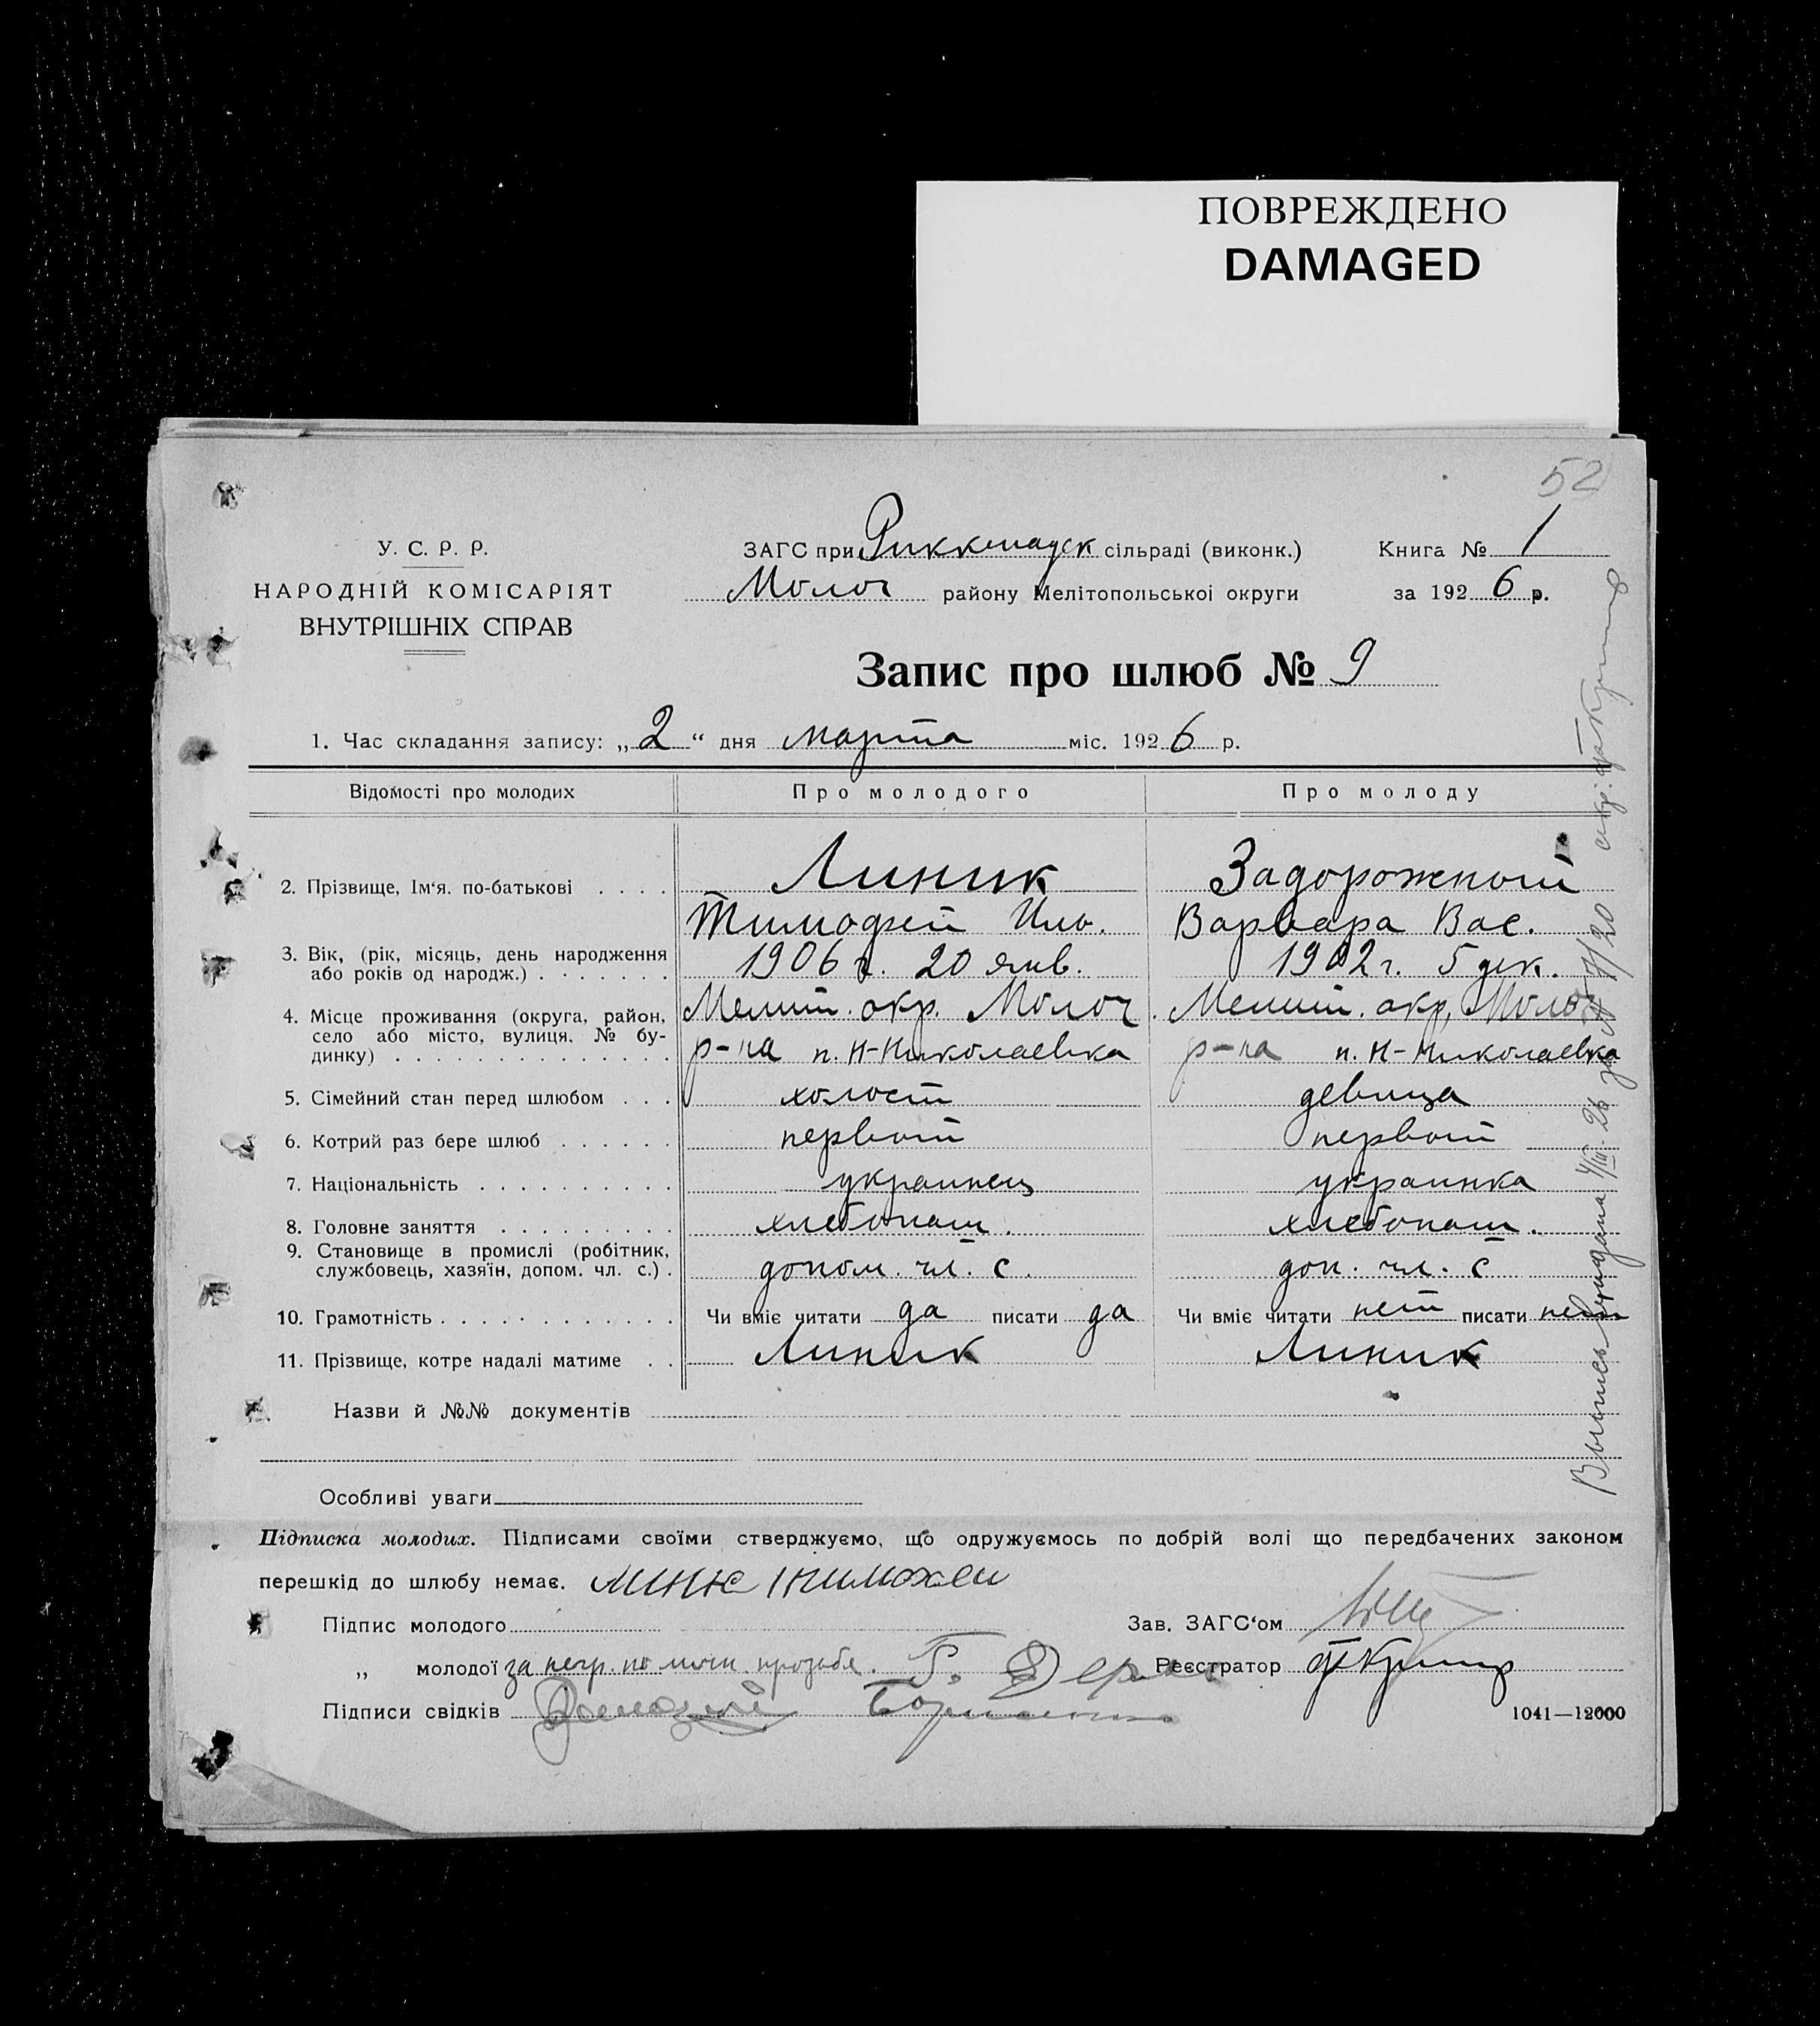 ПОВРЕЖДЕНО
DAMAGED
52
У. С. Р. Р.
НАРОДНІЙ КОМІСАРІЯТ
ВНУТРІШНІХ СПРАВ
ЗАГС при Риккенауск сільраді (виконк.)
Молоч району Мелітопольської округи
Книга № 1
за 1926 р.
Запис про шлюб № 9
1. Час складання запису: „2“ дня марта міс. 1926 р.
Відомості про молодих Про молодого Про молоду
2. Прізвище, Ім‘я. по-батькові . . . . Линик Задорожной
Тимофей Иль. Варвара Вас.
3. Вік, (рік, місяць, день народження
або років од народж.) . . . . . . . 1906 г. 20 янв. 1902 г. 5 дек.
4. Місце проживання (округа, район,
село або місто, вулиця, № бу-
динку) . . . . . . . . . . . . . .
Мелит. окр. Молоч. Мелит. окр. Молоч
р-на п. Н-Николаевка р-на п. Н-Николаевка
5. Сімейний стан перед шлюбом . . . холост девица
6. Котрий раз бере шлюб . . . . . . первой первой
7. Національність . . . . . . . . . . украинец украинка
8. Головне заняття . . . . . . . . . хлебопаш. хлебопаш.
9. Становище в промислі (робітник,
службовець, хазяїн, допом. чл. с.) . допом. чл. с. доп. чл. с
10. Грамотність . . . . . . . . . . . . Чи вміє читати да писати да Чи вміє читати нет писати нет
11. Прізвище, котре надалі матиме . . Линик Линик
Назви й №№ документів
Особливі уваги
Підписка молодих. Підписами своїми стверджуємо, що одружуємось по добрій волі що передбачених законом
перешкід до шлюбу немає.
Підпис молодого
Зав. ЗАГС‘ом
„ молодої за негр. по
Реєстратор
Підписи свідків
1041—12000
Выпись выдана 4/III-26 за № 7/20